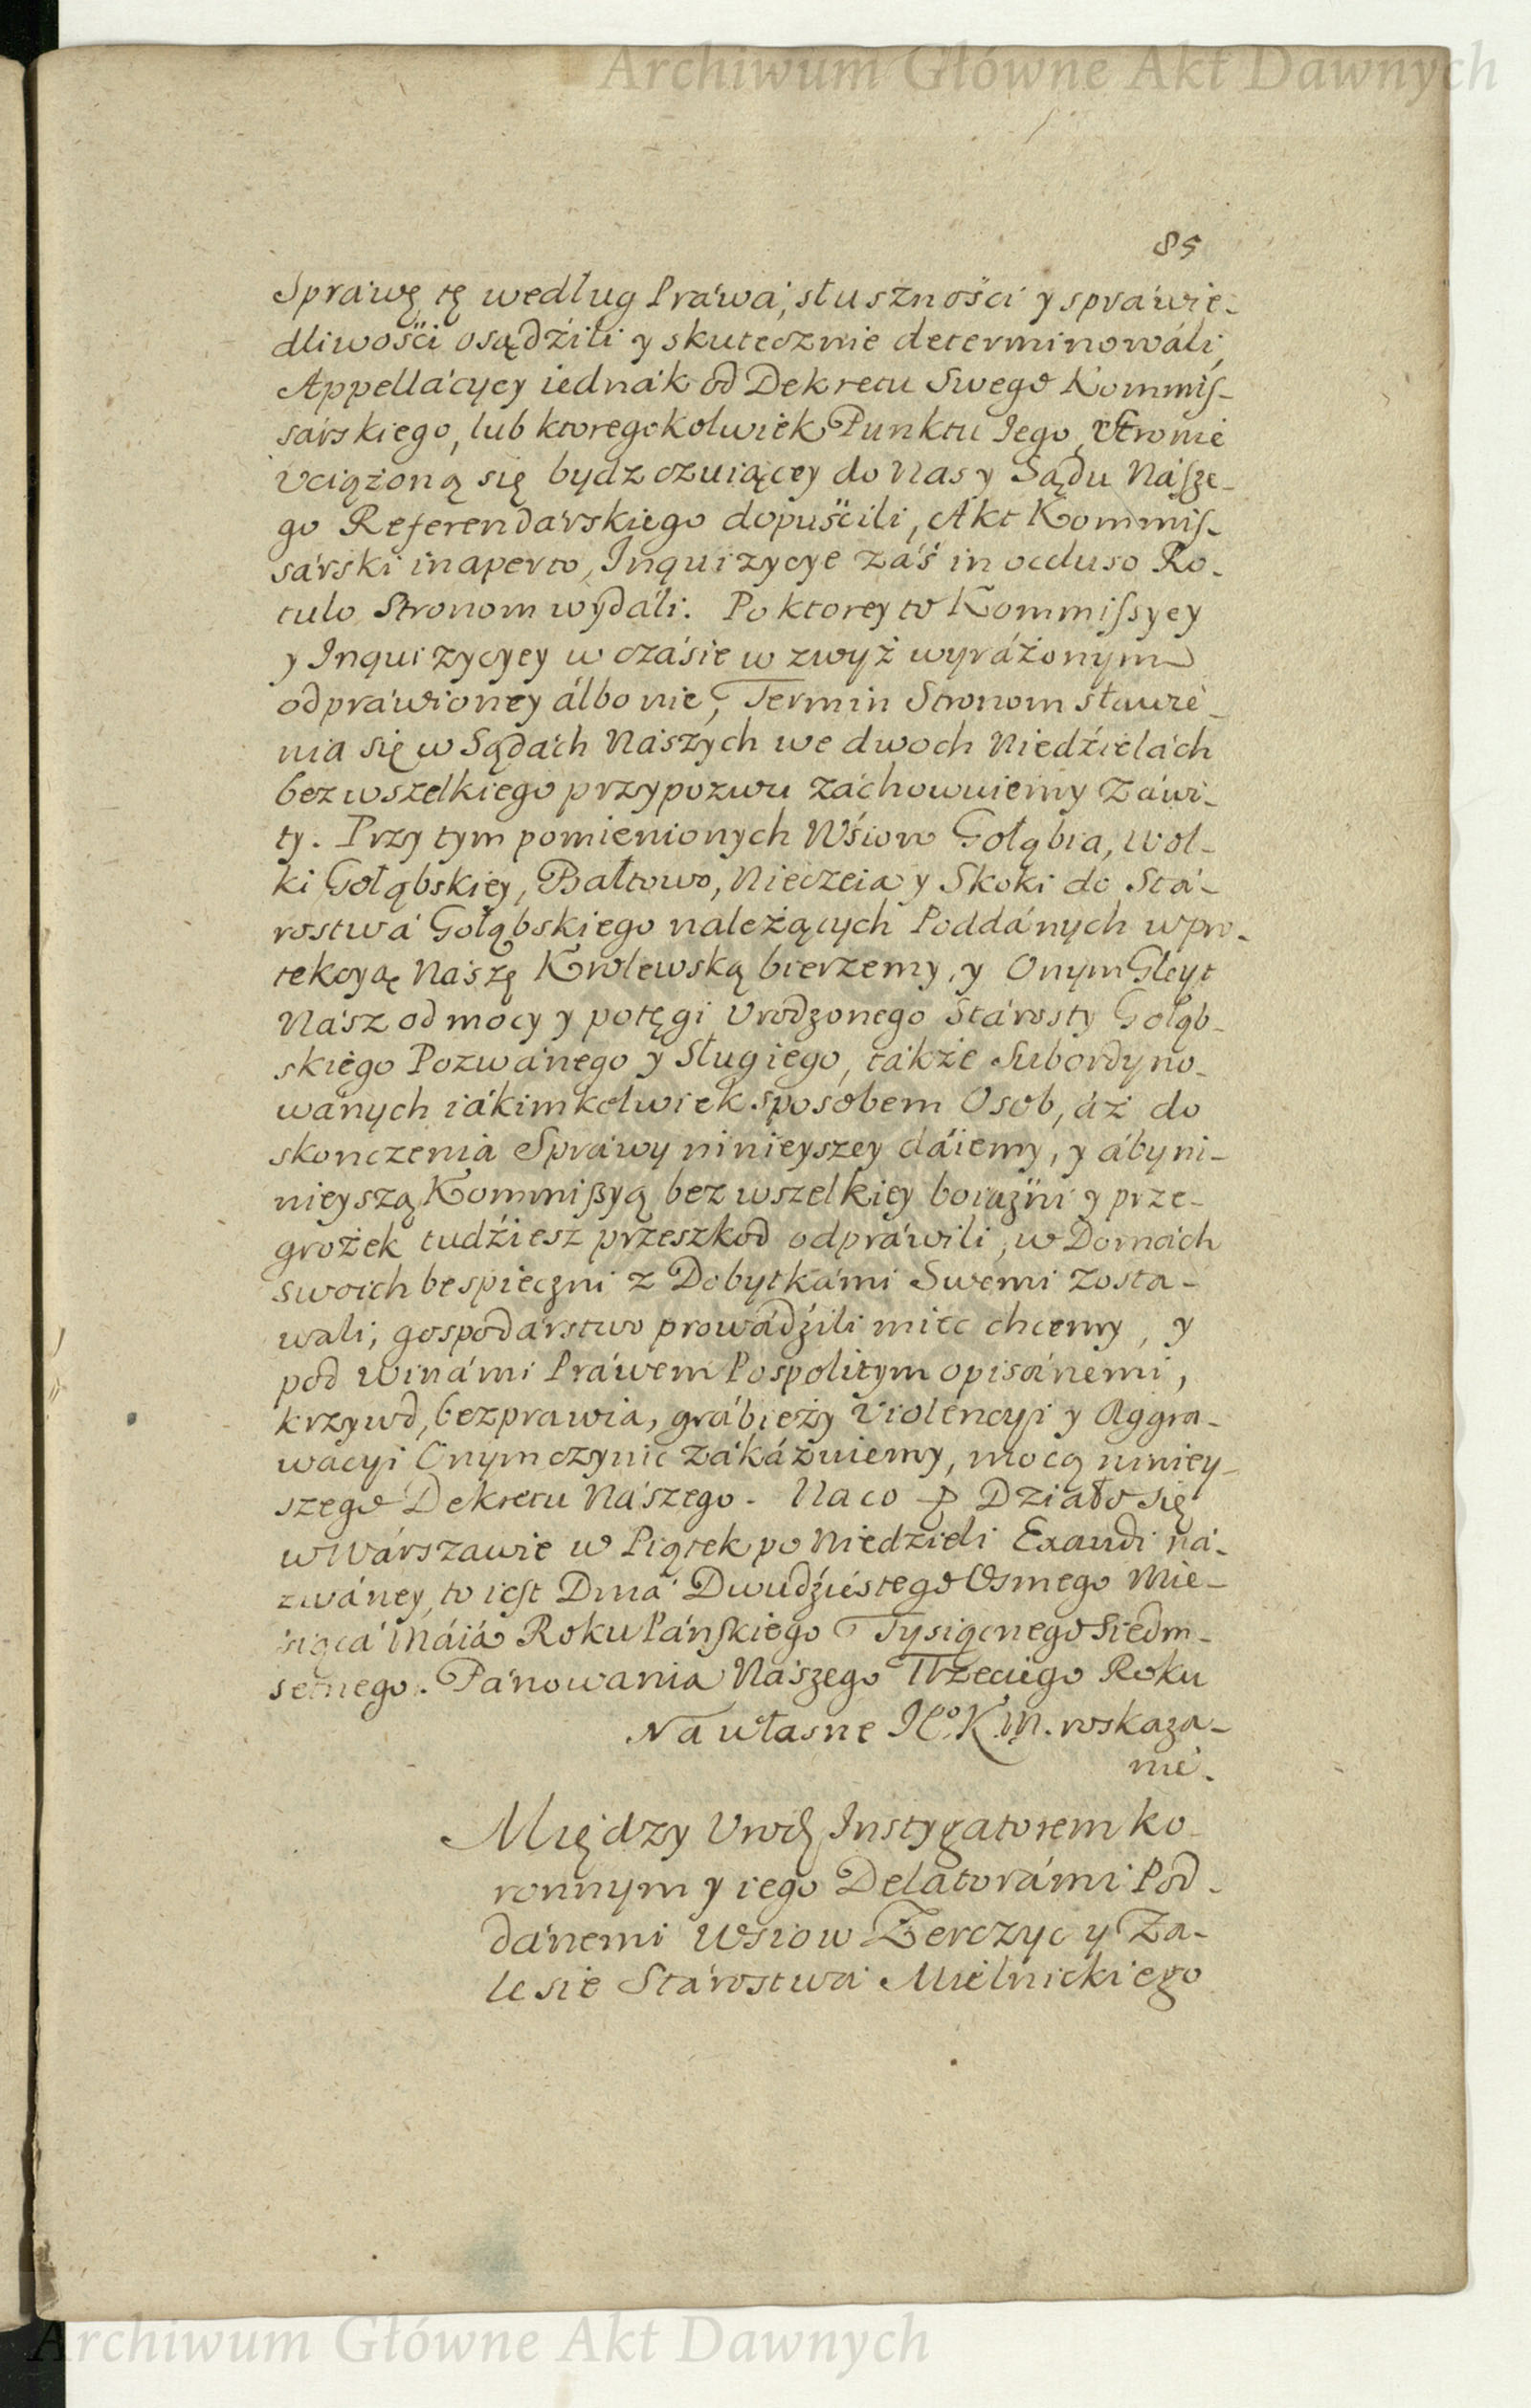 Archiwum Główne Akt Dawnych
85
Spráwę tę według Práwá, słuszności y spráwie-
dliwości osądźili y skutecznie determinowáli,
Appellácyey iednák od Dekretu Swego Kommis-
sárskiego, lub ktoregokolwiek Punktu Iego, Stronie
Vciążoną się bydz czuiącey do Nas y Sądu Násze-
go Referendárskiego dopuścili, Akt Kommis-
sárski in aperto, Inquizycye záś in occluso Ro-
tulo Stronom wydáli. Po ktorey to Kommissyey
y Inquizycyey w czásie w zwyż wyráżonym
odpráwioney álbo nie, Termin Stronom stawie-
nia się w Sądách Nászych we dwoch Niedźielách
bez wszelkiego przypozwu záchowuiemy Záwi-
ty. Przy tym pomienionych Wśiow Gołąbia, Wol-
ki Gołąbskiey, Bałtowo, Nieczeia y Skoki do Stá-
rostwá Gołąbskiego należących Poddánych w pro-
tekcyą Nászę Krolewską bierzemy, y Onym Gleyt
Nász od mocy y potęgi Vrodzonego Stárosty Gołąb-
skiego Pozwánego y Sług iego, tákże Subordyno-
wánych iákimkolwiek sposobem Osob, áż do
skonczenia Spráwy ninieyszey dáiemy, y áby ni-
nieyszą Kommißyą bez wszelkiey boiaźni y prze-
grożek tudźiesz przeszkod odpráwili, w Domách
swoich bespieczni z Dobytkámi Swemi zosta-
wali, gospodárstwo prowádźili miec chcemy, y
pod Winámi Práwem Pospolitym opisánemi,
krzywd, bezprawia, grábieży Violencyi y Aggra-
wacyi Onym czynic zákázuiemy, mocą niniey-
szego Dekretu Nászego. Na co p Działo się
w Wárszawie w Piątek po Niedzieli Exaudi ná-
zwáney, to iest Dniá Dwudźiestego Osmego Mie-
siącá Máiá Roku Páńskiego Tysiącnego Siedm-
setnego. Pánowania Nászego Trzeciego Roku
Na własne Je{o} K. M. roskaza-
nie.
Między Urodz Instygatorem ko-
ronnym y iego Delatorámi Pod-
dánemi Wsiow Zerczyc y Za-
lesie Stárostwá Mielnickiego
Archiwum Główne Akt Dawnych